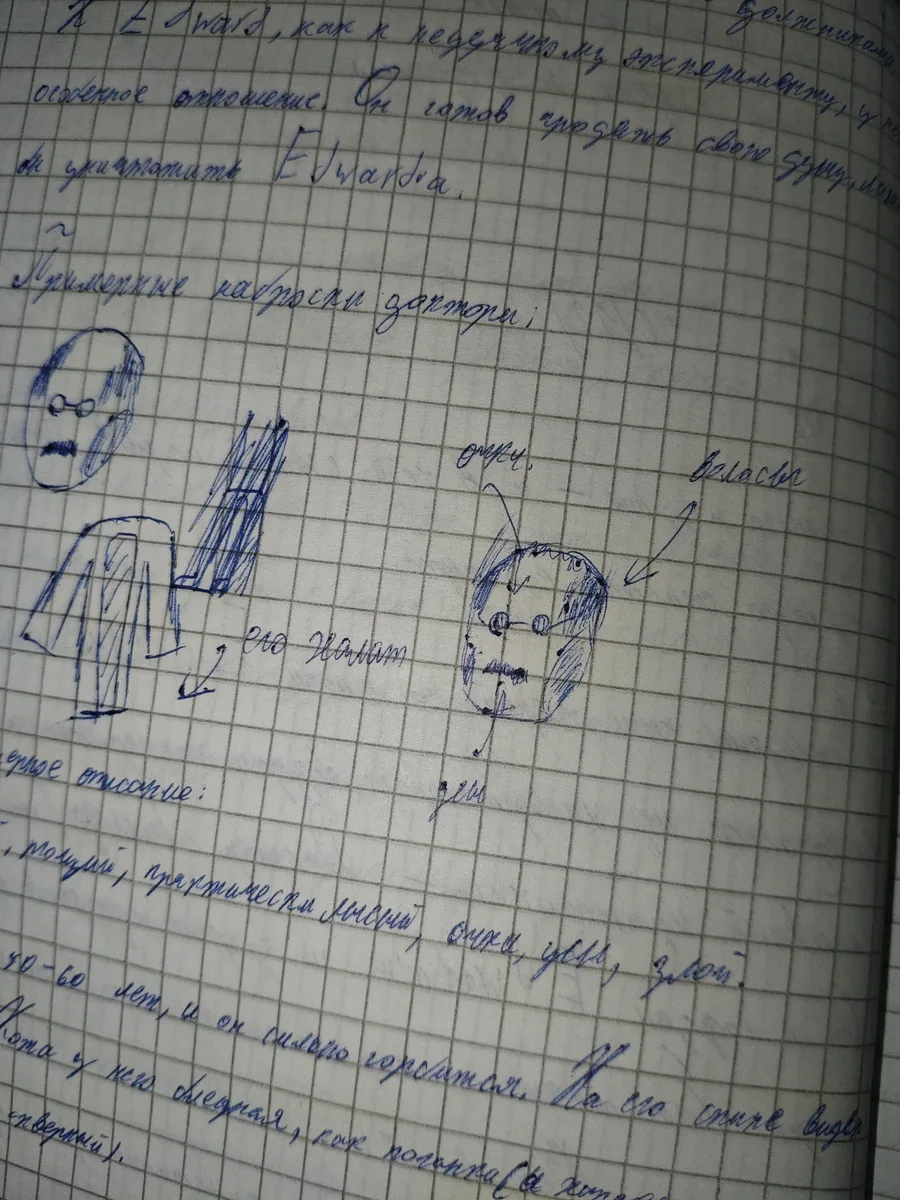 должниками.
К Edward, как к неудачному эксперименту, у н
особенное отношение. Он готов продать свою душу, лишь
бы уничтожить Edwardа.
~
Примерные наброски доктора:
очки.
воласы
его халат
усы
ерное описание:
, тощий, практически лысый, очки, усы, злой.
40-60 лет, и он сильно горбится. На его спине виден
Кожа у него бледная, как поганка (а хар
скверный).